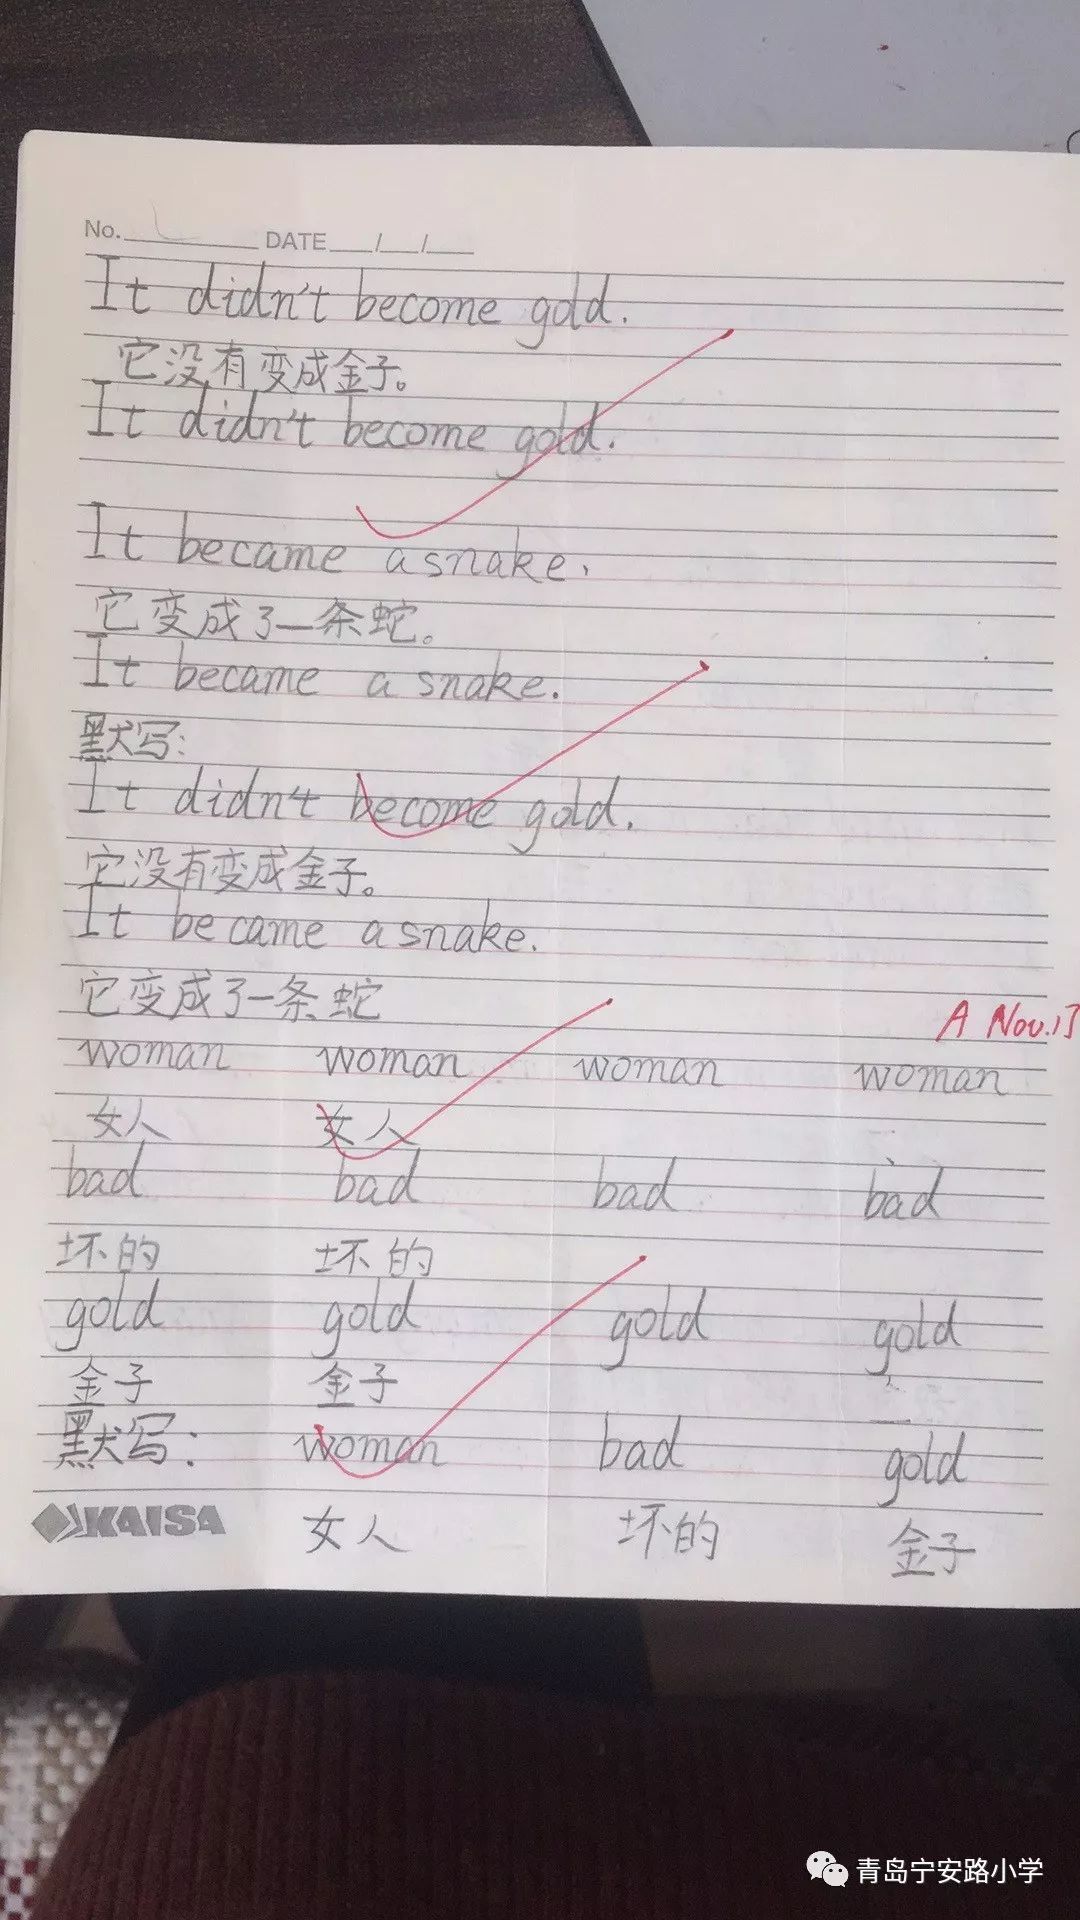 No. DATE / /
It didn't become gold.
它没有变成金子。
It didn't become gold.
It became a snake.
它变成了一条蛇。
It became a snake.
默写:
It didn't become gold.
它没有变成金子。
It became a snake.
它变成了一条蛇
A Nov.
woman woman woman woman
女人 女人
bad bad bad bad
坏的 坏的
gold gold gold gold
金子 金子
默写: woman bad gold
KAISA 女人 坏的 金子
青岛宁安路小学